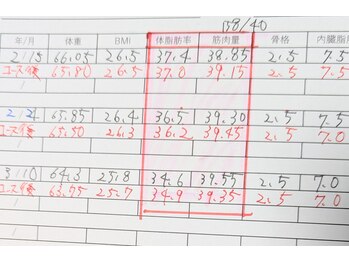 158/40
年/月 体重 BMI 体脂肪率 筋肉量 骨格 内臓脂肪
2/15 66.05 26.5 37.4 38.85 2.5 7.5
コース後 65.80 26.5 37.0 39.15 2.5 7.5
/
2/24 65.85 26.4 36.5 39.30 2.5 7.5
コース後 65.50 26.3 36.2 39.45 2.5 7.5
/
3/10 64.3 25.8 34.6 39.55 2.5 7.0
コース後 63.95 25.7 34.9 39.35 2.5 7.0
/